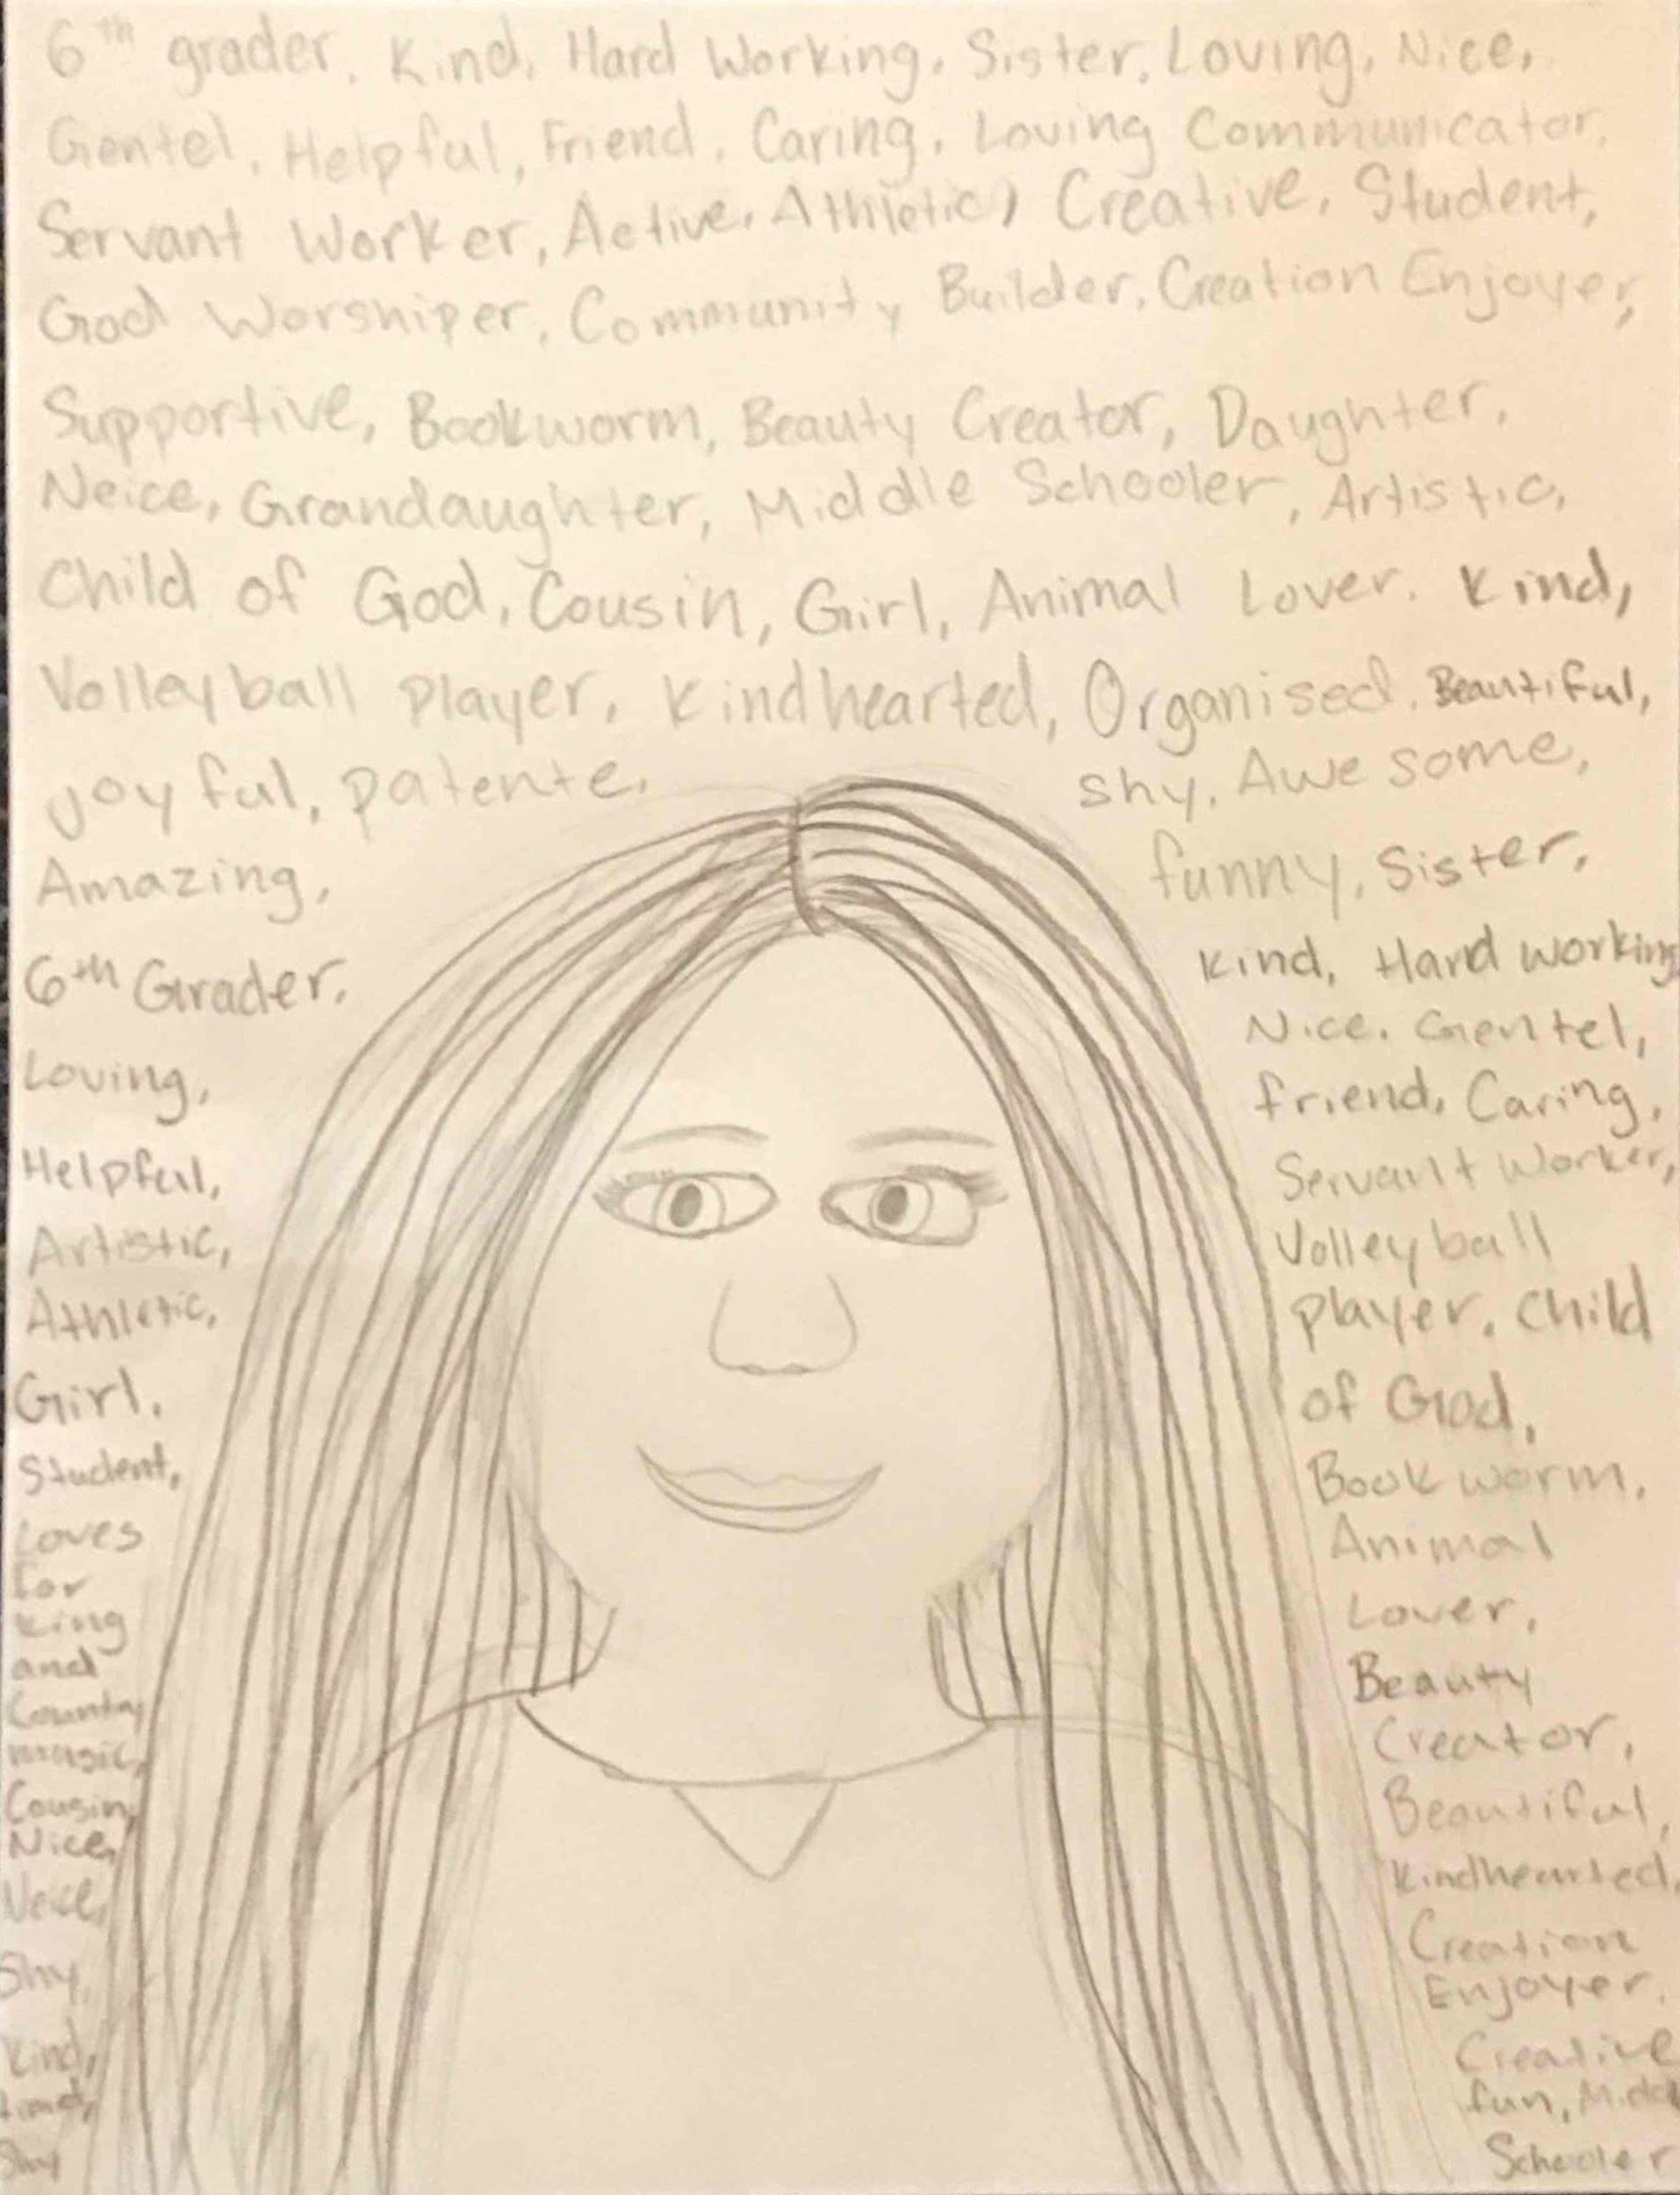 6th grader, Kind, Hard Working, Sister, Loving, Nice,
Gentel, Helpful, Friend, Caring, Loving Communicator,
Servant Worker, Active, Athletic, Creative, Student,
God Worshiper, Community Builder, Creation Enjoyer,
Supportive, Bookworm, Beauty Creator, Daughter,
Neice, Grandaughter, Middle Schooler, Artistic,
Child of God, Cousin, Girl, Animal Lover. Kind,
Volleyball Player, Kindhearted, Organised, Beautiful,
joyful, patente,
Amazing,
6th Grader,
Loving,
Helpful,
Artistic,
Athletic,
Girl,
Student,
Loves
for
king
and
Country
music,
Cousin,
Nice,
Neice,
Shy,
Kind,
Shy
shy, Awesome,
funny, Sister,
Kind, Hard Working
Nice. Gentel,
friend, Caring,
Servant Worker,
Volleyball
player, Child
of God,
Bookworm,
Animal
Lover,
Beauty
Creator,
Beautiful,
Kindhearted,
Creation
Enjoyer,
Creative
fun,
Schooler